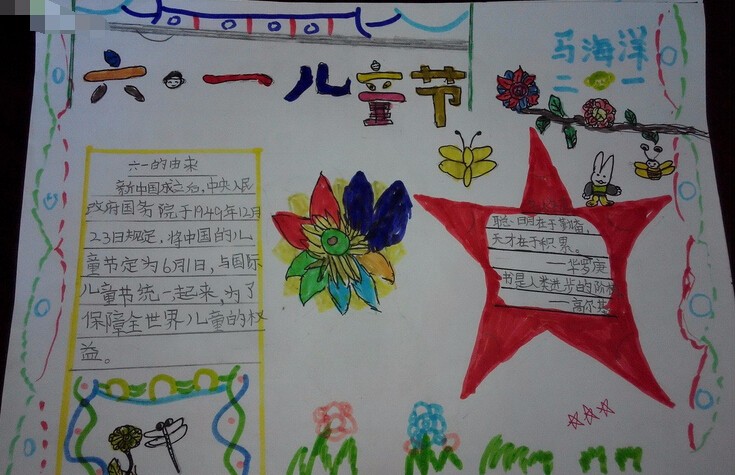 六·一儿童节
马海洋
二(一
六一的由来
新中国成立后,中央人民
政府国务院于1949年12月
23日规定,将中国的儿
童节定为6月1日,与国际
儿童节统一起来,为了
保障全世界儿童的权
益。
聪明在于勤奋,
天才在于积累。
——华罗庚
书是人类进步的阶梯
——高尔基